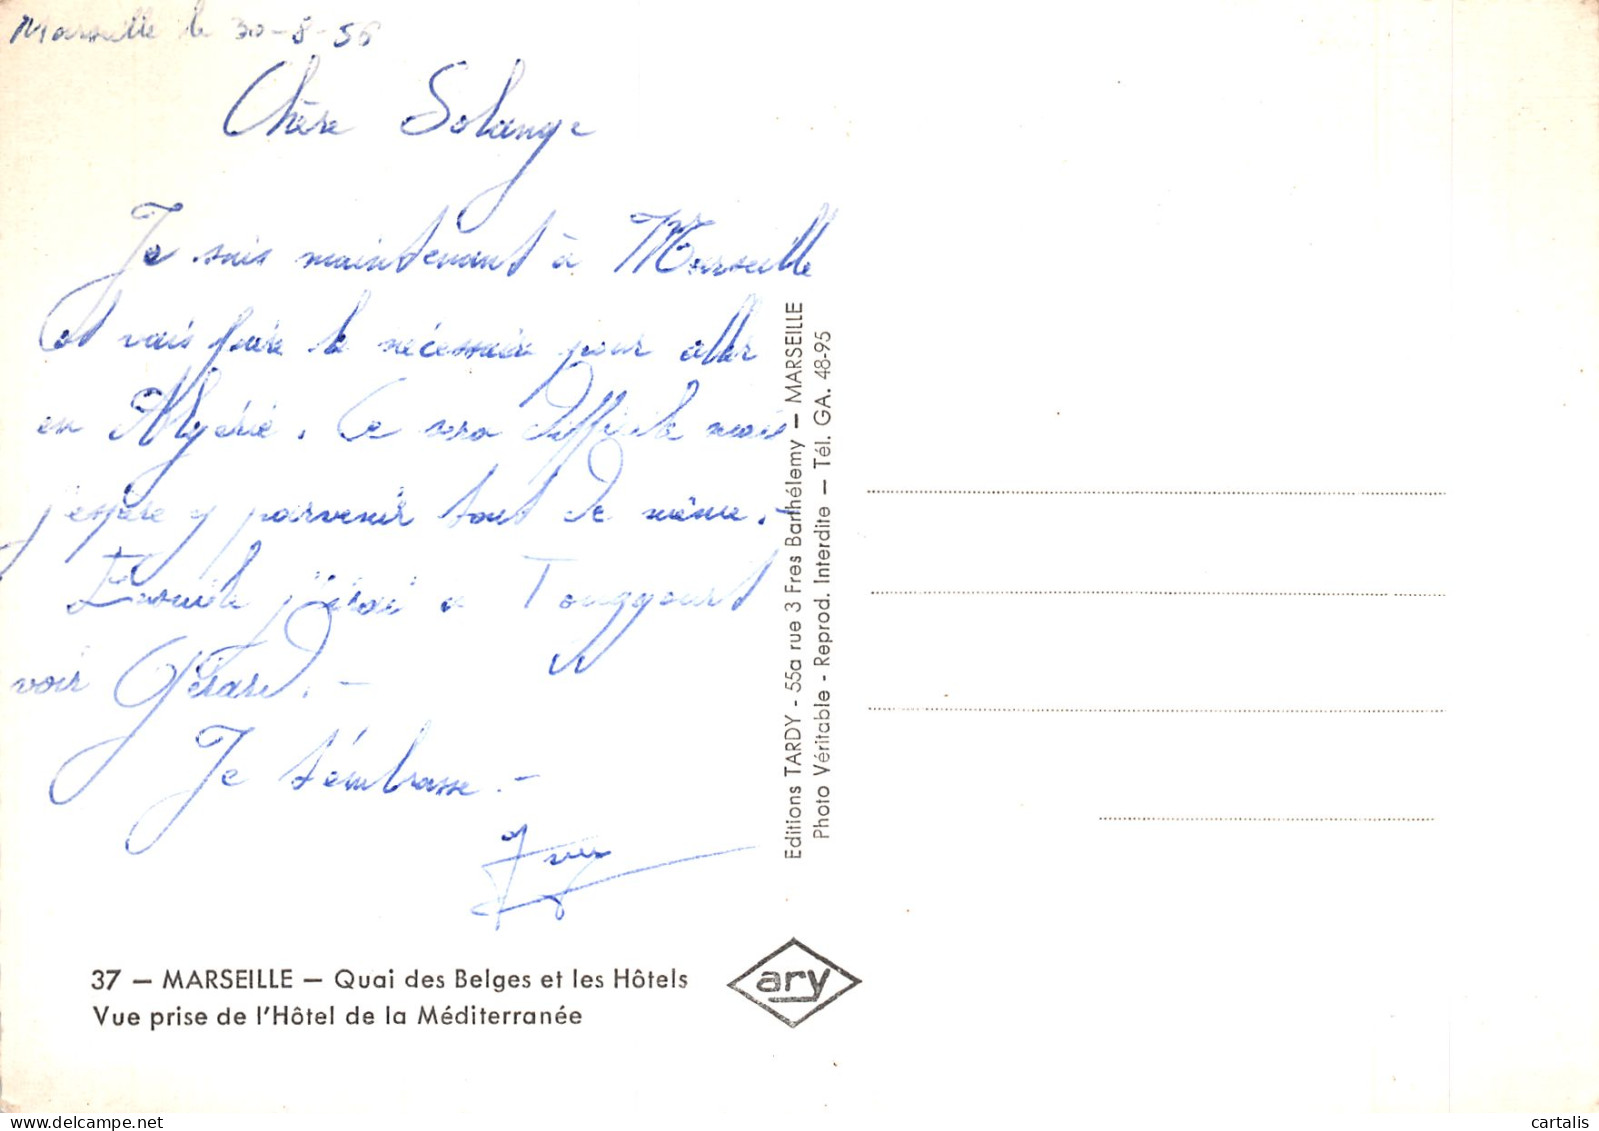 Marseille le 30-8-56
Chère Solange
Je suis maintenant à Marseille
et vais faire le nécessaire pour aller
en Algérie. Ce sera difficile mais
j'espère y parvenir tout de même.-
Ensuite j'irai a Touggourt
voir Gérard.-
Je t'émbrasse.-
37 – MARSEILLE – Quai des Belges et les Hôtels
Vue prise de l'Hôtel de la Méditerranée
Editions TARDY - 55a rue 3 Fres Barthélemy – MARSEILLE
Photo Véritable - Reprod. Interdite – Tél. GA. 48-95
ary
cartalis